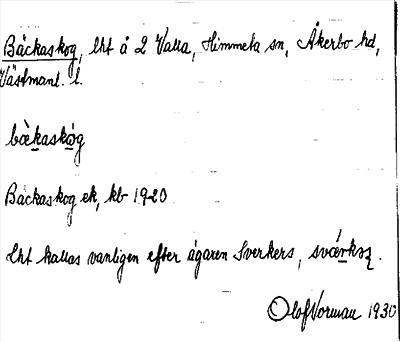 Bäckaskog, lht å 2 Valla, Himmeta sn, Åkerbo hd,
Västmanl. l.
bæ̀kaskóg
Backaskog ek, kb 1920
Lht kallas vanligen efter ägaren Sverkers, svǽrkəʂ.
Olof Vorman 1930